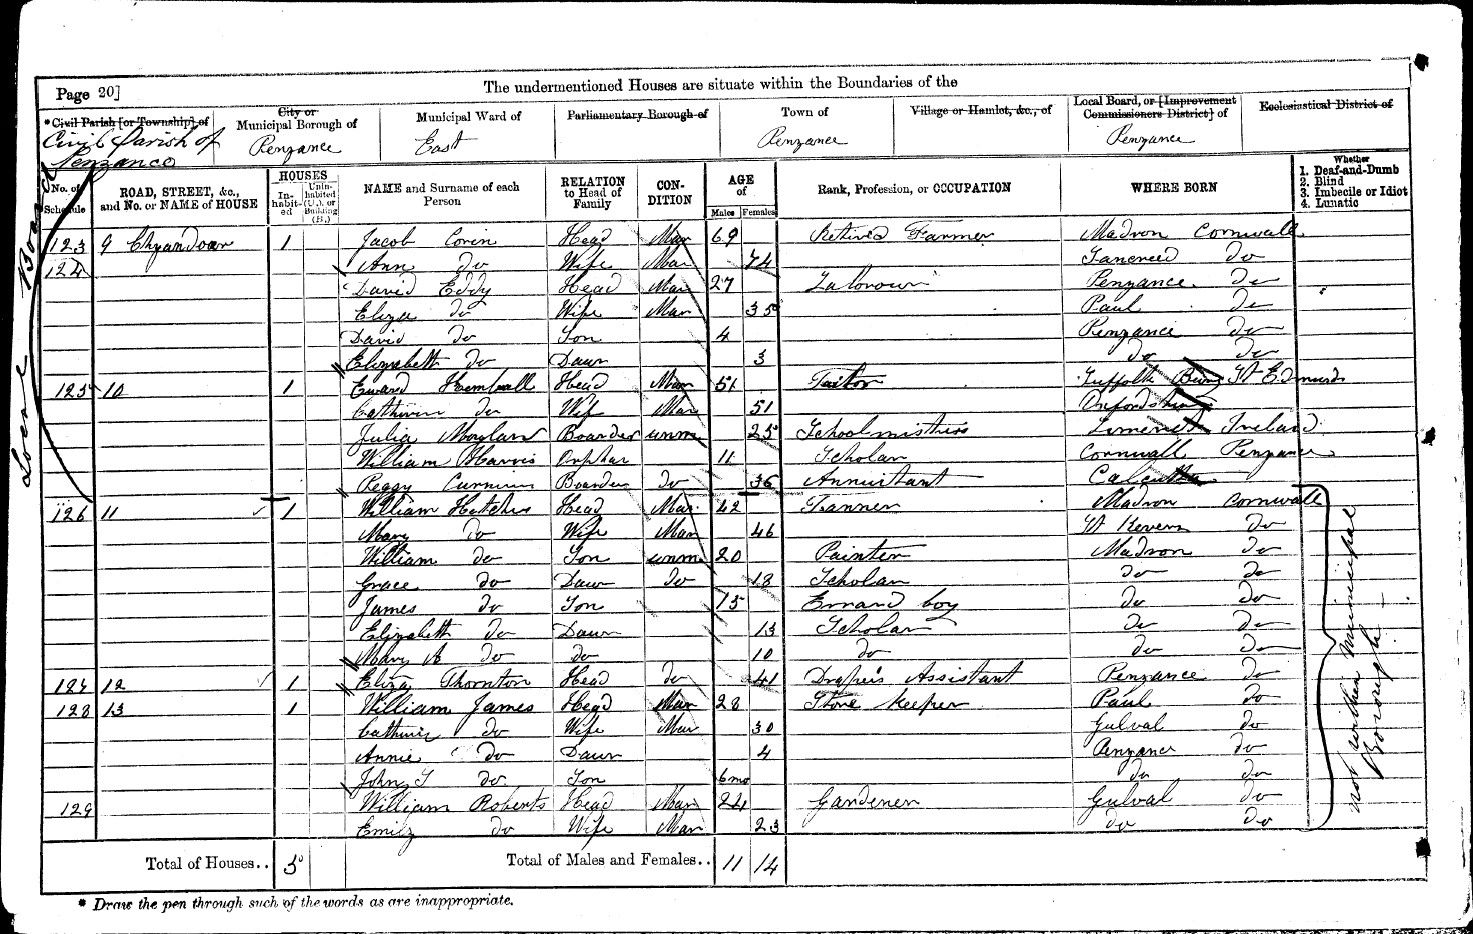 The undermentioned Houses are situate within the Boundaries of the
Page 20]
*Civil Parish [or Township] of
Civil Parish of
Penzance
City or
Municipal Borough of
Penzance
Municipal Ward of
East
Parliamentary Borough of
Town of
Penzance
Village or Hamlet, &c., of
Local Board, or [Improvement
Commissioners District] of
Penzance
Ecclesiastical District of
No. of
Schedule
ROAD, STREET, &c.,
and No. or NAME of HOUSE
HOUSES
In-
habit-
ed
Unin-
habited
(U.), or
Building
(B.)
NAME and Surname of each
Person
RELATION
to Head of
Family
CON-
DITION
AGE
of
Males Females
Rank, Profession, or OCCUPATION
WHERE BORN
Whether
1. Deaf-and-Dumb
2. Blind
3. Imbecile or Idiot
4. Lunatic
Local Board
123 9 Chyandour 1 Jacob Corin Head Mar 69 Retired Farmer Madron Cornwall
124 Ann do Wife Mar 74 Sancreed do
David Eddy Head Mar 27 Labourer Penzance do
Eliza do Wife Mar 35 Paul do
David do Son 4 Penzance do
Elizabeth do Daur 3 do do
125 10 1 Edward Head Mar 51 Tailor Suffolk Bury St Edmunds
Catherine do Wife Mar 51 Oxfordshire
Julia Boarder unm 25 Schoolmistress Limerick Ireland
William Harris Orphan 11 Scholar Cornwall Penzance
Peggy Boarder do 36 Annuitant Calcutta
126 11 1 William Head Mar 42 Tanner Madron Cornwall
Mary do Wife Mar 46 St Kevern do
William do Son unm 20 Painter Madron do
Grace do Daur do 18 Scholar do do
James do Son 15 Errand boy do do
Elizabeth do Daur 13 Scholar do do
Mary A do do 10 do do do
12 1 Eliza Thornton Head do 41 Draper's Assistant Penzance do
128 13 1 William James Head Mar 28 Store Keeper Paul do
Catherine do Wife Mar 30 Gulval do
Annie do Daur 4 Penzance do
John do Son 6mo do do
129 William Roberts Head Mar 24 Gardener Gulval do
Emily do Wife Mar 23 do do
not within Municipal
Borough
Total of Houses.. 5 Total of Males and Females.. 11 14
* Draw the pen through such of the words as are inappropriate.